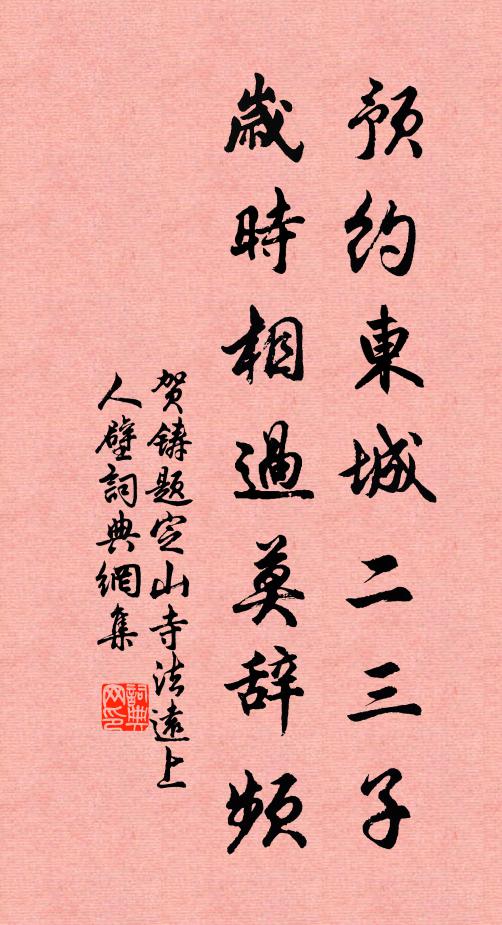 預約東城二三子
歲時相過莫辞頻
贺鑄题定山寺法遠上
人壁詞典網集
詞典網印